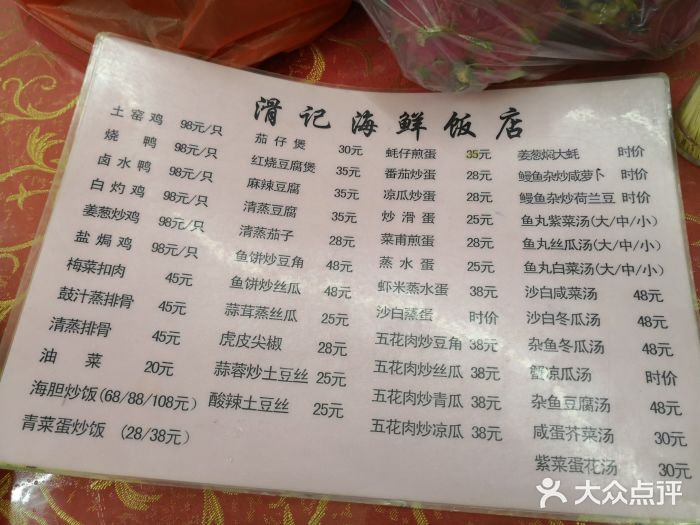 滑记海鲜饭店
土窑鸡 98元/只
烧鸭 98元/只
卤水鸭 98元/只
白灼鸡 98元/只
姜葱炒鸡 98元/只
盐焗鸡 98元/只
梅菜扣肉 45元
鼓汁蒸排骨 45元
清蒸排骨 45元
油菜 20元
海胆炒饭(68/88/108元)
青菜蛋炒饭 (28/38元)
茄仔煲 30元
红烧豆腐煲 35元
麻辣豆腐 35元
清蒸豆腐 35元
清蒸茄子 28元
鱼饼炒豆角 48元
鱼饼炒丝瓜 48元
蒜茸蒸丝瓜 25元
虎皮尖椒 28元
蒜蓉炒土豆丝 25元
酸辣土豆丝 25元
蚝仔煎蛋 35元
番茄炒蛋 28元
凉瓜炒蛋 28元
炒滑蛋 25元
菜甫煎蛋 28元
蒸水蛋 25元
虾米蒸水蛋 38元
沙白蒸蛋 时价
五花肉炒豆角 38元
五花肉炒丝瓜 38元
五花肉炒青瓜 38元
五花肉炒凉瓜 38元
姜葱焖大蚝 时价
鳗鱼杂炒咸萝卜 时价
鳗鱼杂炒荷兰豆 时价
鱼丸紫菜汤(大/中/小)
鱼丸丝瓜汤(大/中/小)
鱼丸白菜汤(大/中/小)
沙白咸菜汤 48元
沙白冬瓜汤 48元
杂鱼冬瓜汤 48元
蟹凉瓜汤 时价
杂鱼豆腐汤 48元
咸蛋芥菜汤 30元
紫菜蛋花汤 30元
大众点评